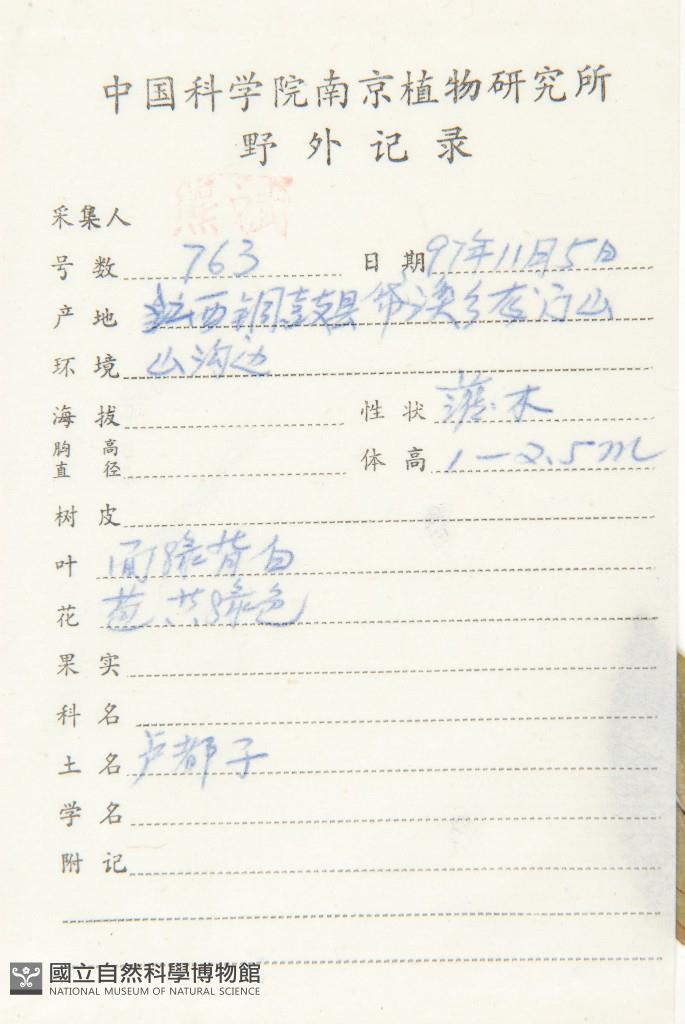 中国科学院南京植物研究所
野外记录
采集人 熊
号数 763 日期 97年11月5日
产地 江西铜鼓县 溪乡 山
环境 山沟边
海拔 性状 灌木
胸高直径 体高 1—2.5m
树皮
叶 面绿背白
花 苞片绿色
果实
科名
土名 卢都子
学名
附记
國立自然科學博物館
NATIONAL MUSEUM OF NATURAL SCIENCE